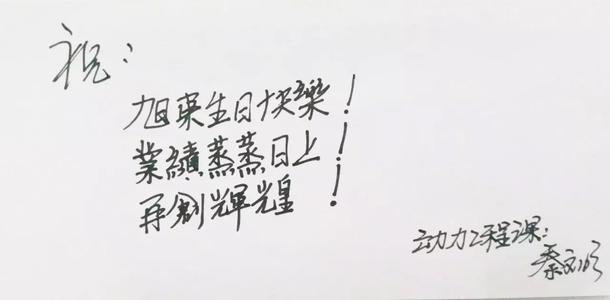 祝：
旭東生日快樂！
業績蒸蒸日上！
再創輝煌！
动力工程课：
秦